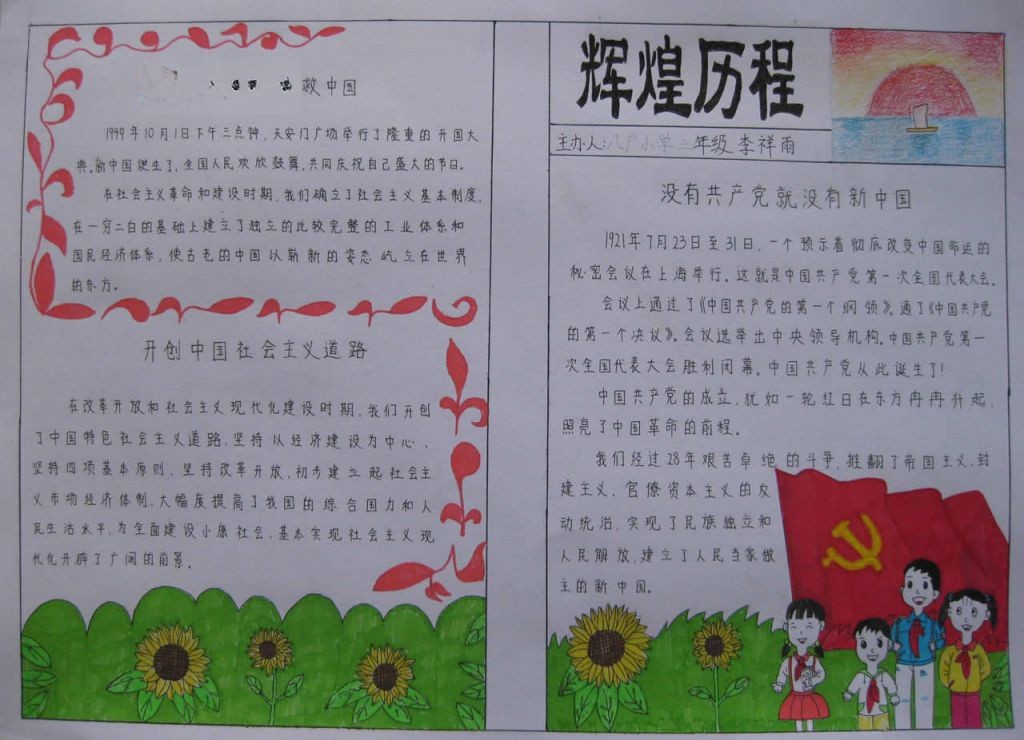 救中国
1949年10月1日下午三点钟,天安门广场举行了隆重的开国大
典,新中国诞生了,全国人民欢欣鼓舞,共同庆祝自己盛大的节日。
在社会主义革命和建设时期,我们确立了社会主义基本制度,
在一穷二白的基础上建立了独立的比较完整的工业体系和
国民经济体系,使古老的中国以崭新的姿态屹立在世界
的东方。
开创中国社会主义道路
在改革开放和社会主义现代化建设时期,我们开创
了中国特色社会主义道路,坚持以经济建设为中心、
坚持四项基本原则、坚持改革开放,初步建立起社会主
义市场经济体制,大幅度提高了我国的综合国力和人
民生活水平,为全面建设小康社会,基本实现社会主义现
代化开辟了广阔的前景。
辉煌历程
主办人:八户小学三年级 李祥雨
没有共产党就没有新中国
1921年7月23日至31日,一个预示着彻底改变中国命运的
秘密会议在上海举行。这就是中国共产党第一次全国代表大会。
会议上通过了《中国共产党的第一个纲领》,通了《中国共产党
的第一个决议》。会议选举出中央领导机构。中国共产党第一
次全国代表大会胜利闭幕。中国共产党从此诞生了!
中国共产党的成立,犹如一轮红日在东方冉冉升起,
照亮了中国革命的前程。
我们经过28年艰苦卓绝的斗争,推翻了帝国主义、封
建主义、官僚资本主义的反
动统治,实现了民族独立和
人民解放,建立了人民当家做
主的新中国。